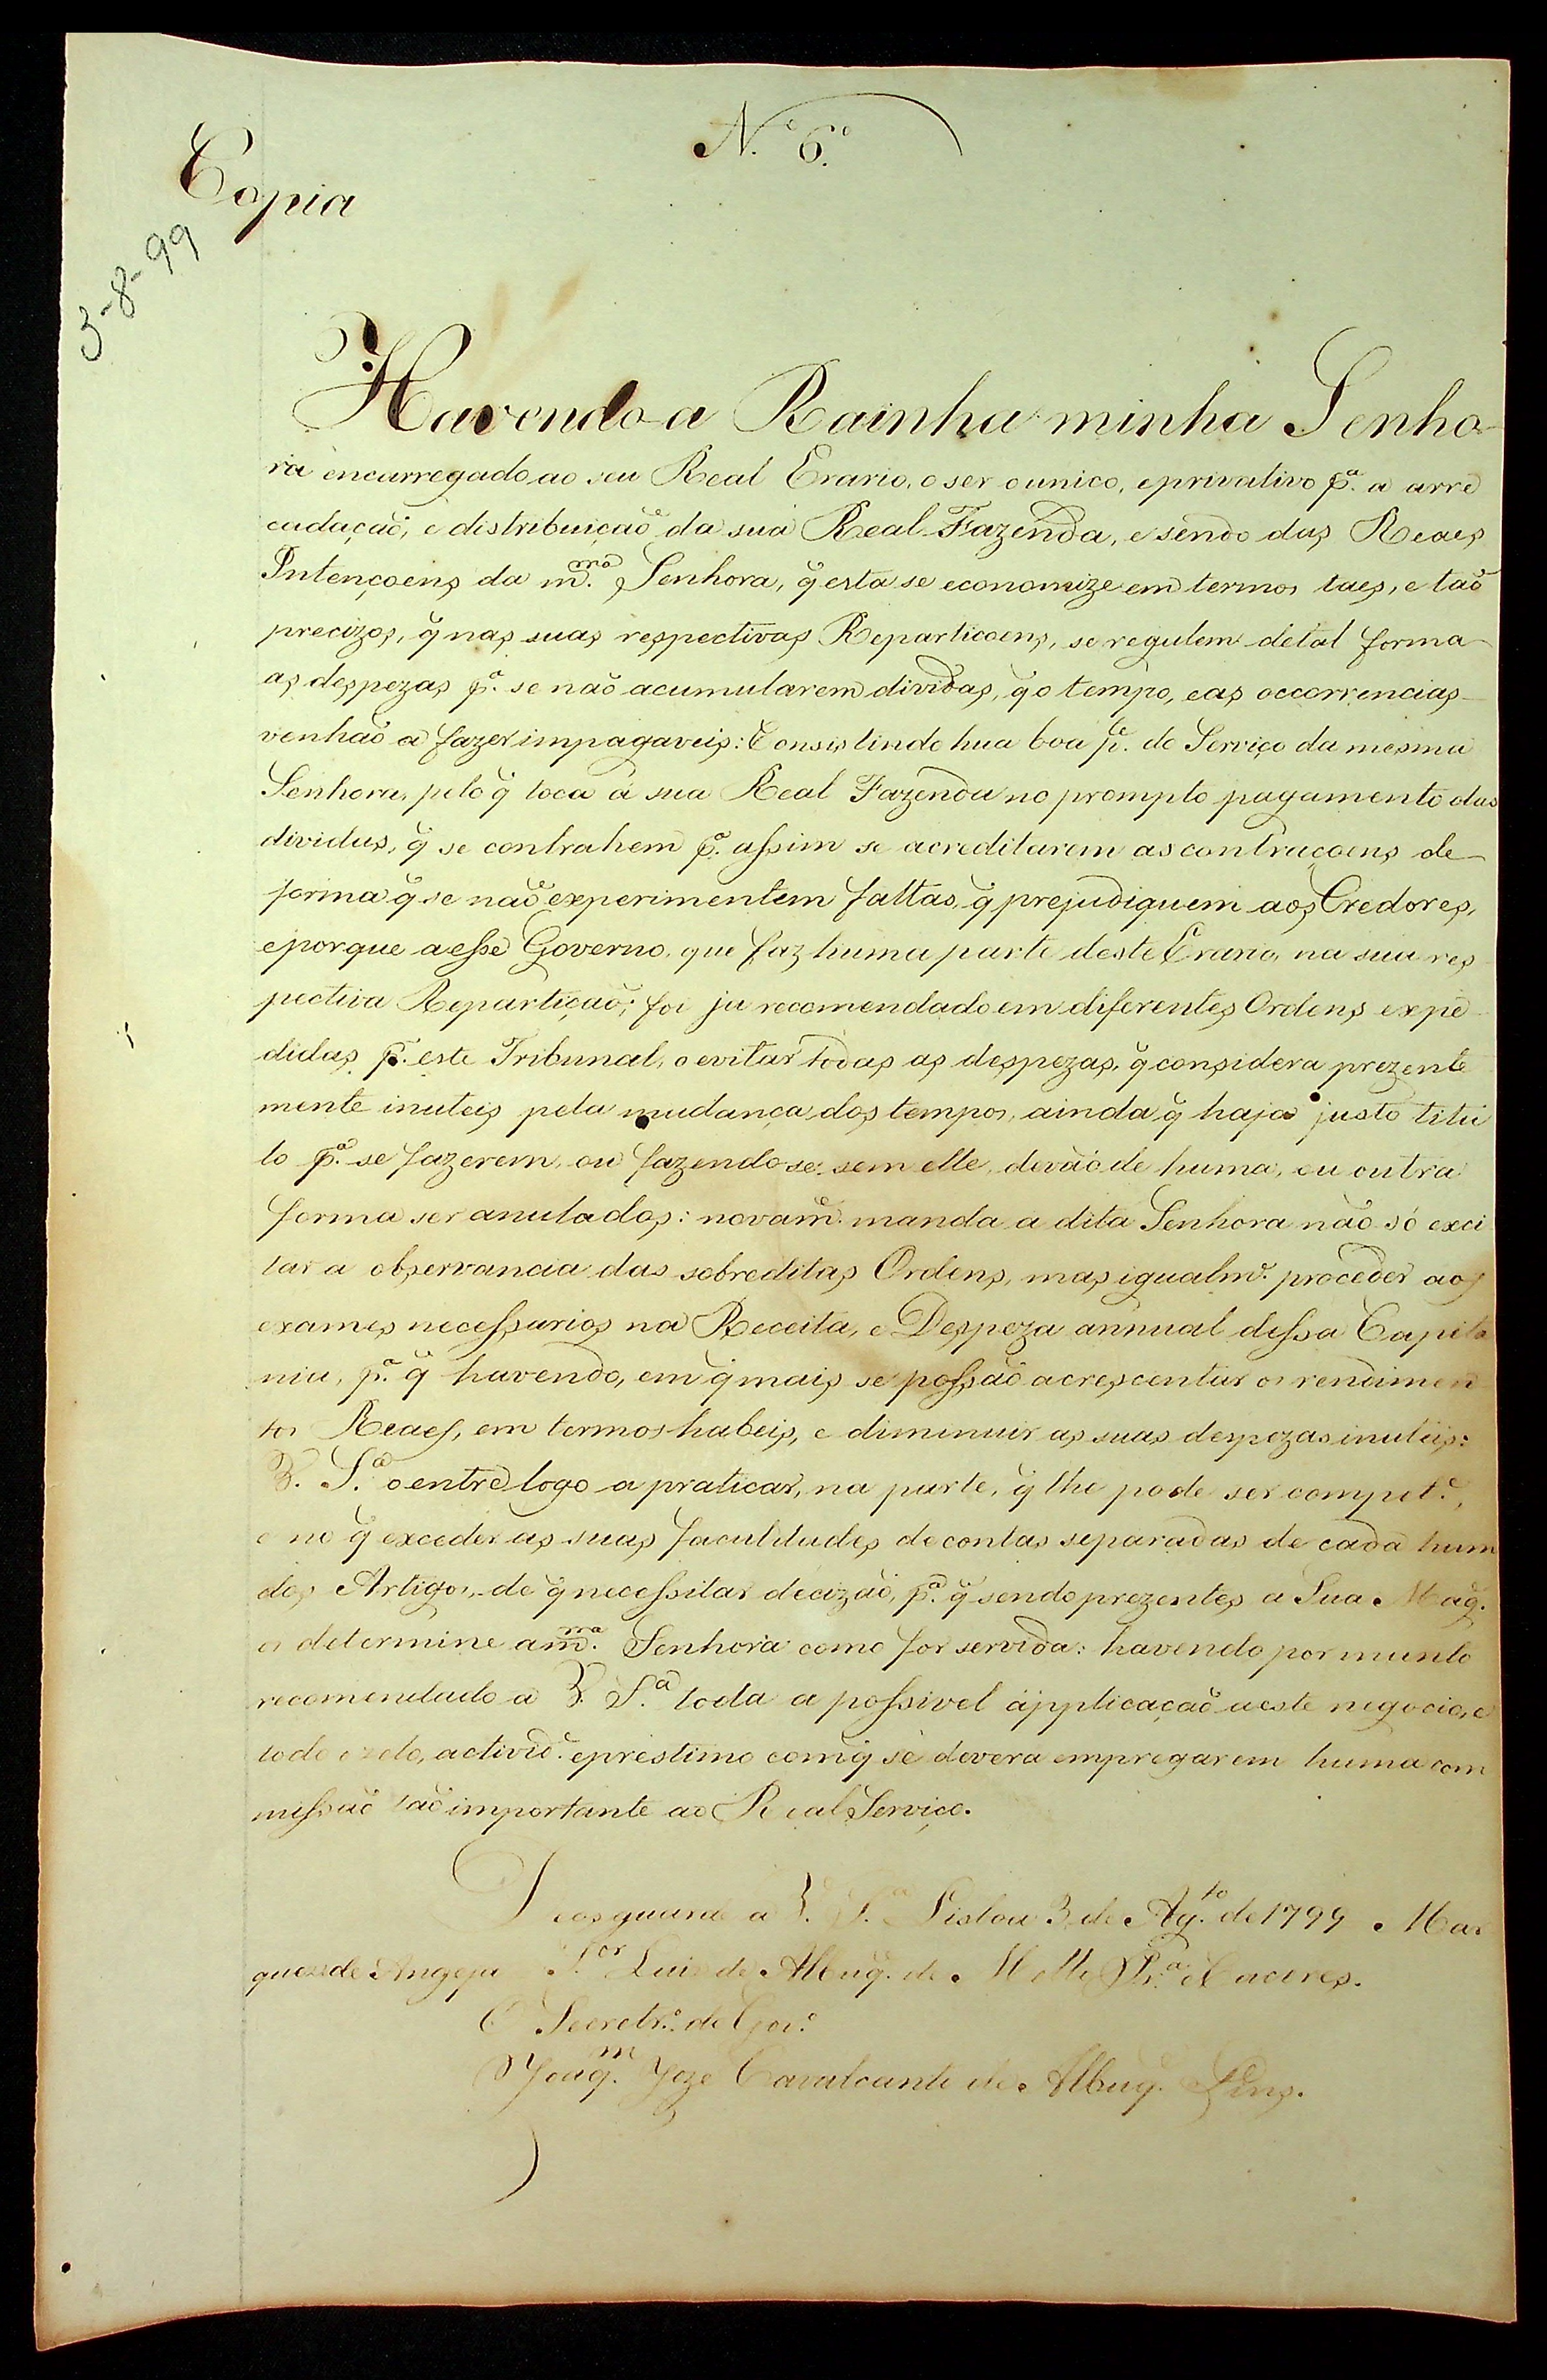 N.º 6.º
Copia
3-8-99
Havendo a Rainha minha Senho-
ra encarregado ao seu Real Erario, o ser o unico, e privativo p.ª a arre
cadação, e distribuição da sua Real Fazenda, e sendo das Reaes
Intençoens da m.ma Senhora, q̃ esta se economize em termos taes, e tão
precizos, q̃ nas suas respectivas Reparticoens, se regulem de tal forma
as despezas p.ª se não acumularem dividas, q̃ o tempo, e as occorrencias
venhão a fazer impagaveis: Consistindo hua boa p.e do Serviço da mesma
Senhora, pelo q̃ toca á sua Real Fazenda no prompto pagamento das
dividas, q̃ se contrahem p.ª assim se acreditarem as contraçoens de
forma q̃ se não experimentem faltas, q̃ prejudiquem aos Credores,
e porque a esse Governo, que faz huma parte deste Erario, na sua res
pectiva Repartição; foi ja recomendado em diferentes Ordens expe
didas p.r este Tribunal, o evitar todas as despezas, q̃ considera prezente
mente inuteis pela mudança dos tempos, ainda q̃ haja justo titu
lo p.ª se fazerem, ou fazendo se sem elle, devão de huma, ou outra
forma ser anulados: novam.e manda a dita Senhora não só exci
tar a observancia das sobreditas Ordens, mas igualm.e proceder aos
exames necessarios na Receita, e Despeza annual dessa Capita
nia, p.ª q̃ havendo, em q̃ mais se possão acrescentar os rendimen
tos Reaes, em termos habeis, e diminuir as suas despezas inuteis:
V. S.ª o entre logo a praticar, na parte, q̃ lhe pode ser compet.e,
e no q̃ exceder as suas faculdades de contas separadas de cada hum
dos Artigos, de q̃ necessitar decizão, p.ª q̃ sendo prezentes a Sua Mag.e
o determine a m.ma Senhora como for servida: havendo por muito
recomendado a V. S.ª toda a possivel applicação a este negocio, e
todo o zelo, activid.e e prestimo com q̃ se devera empregar em huma com
missão tão importante ao Real Serviço.
Deos guarde a V. S.ª Lisboa 3 de Ag.to de 1799 Mar
quez de Angeja S.or Luis de Albuq.e de Mello Pr.ª e Caceres.
O Secretr.º do Gov.º
Joaq.m Joze Cavalcante de Albuq.e Lins.